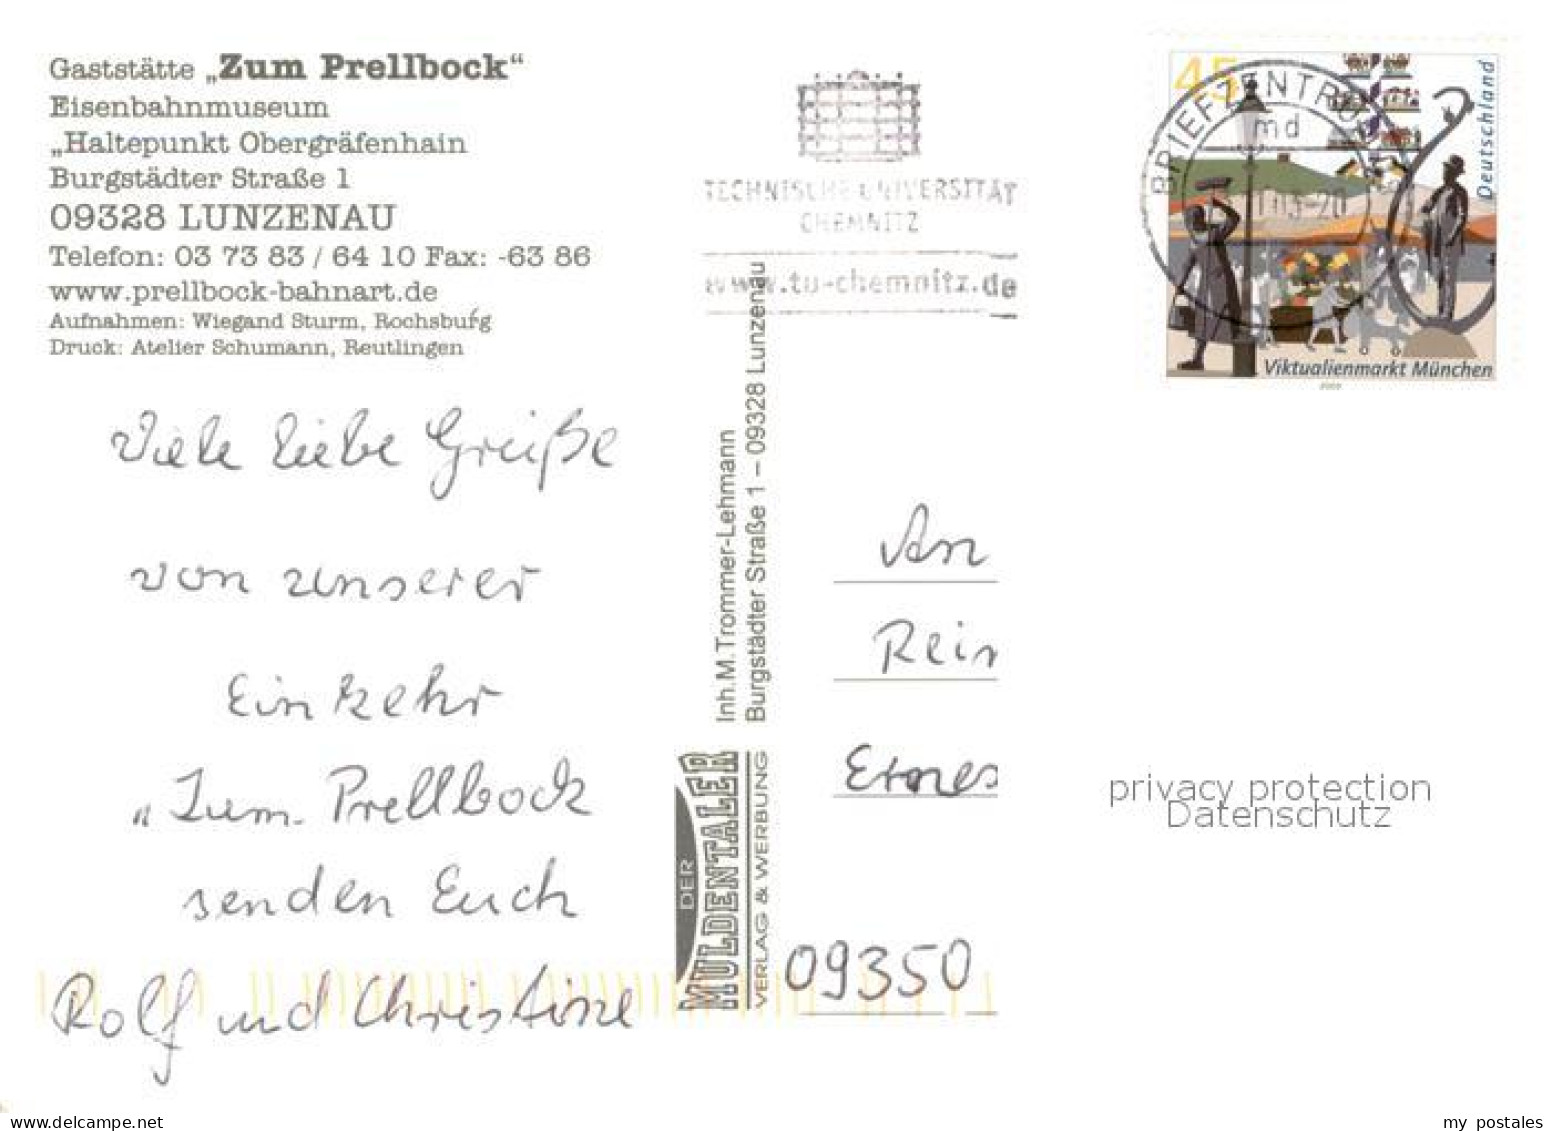 Gaststätte „Zum Prellbock“
Eisenbahnmuseum
„Haltepunkt Obergräfenhain
Burgstädter Straße 1
09328 LUNZENAU
Telefon: 03 73 83 / 64 10 Fax: -63 86
www.prellbock-bahnart.de
Aufnahmen: Wiegand Sturm, Rochsburg
Druck: Atelier Schumann, Reutlingen
Viele liebe Grüße
von unserer
Einkehr
„Zum Prellbock
senden Euch
Rolf und Christine
Inh.M.Trommer-Lehmann
Burgstädter Straße 1 – 09328 Lunzenau
DER
MULDENTALER
VERLAG & WERBUNG
TECHNISCHE UNIVERSITÄT
CHEMNITZ
www.tu-chemnitz.de
45
Deutschland
BRIEFZENTRUM
md
Viktualienmarkt München
2003
An
Rein
Ernes
09350
privacy protection
Datenschutz
my postales